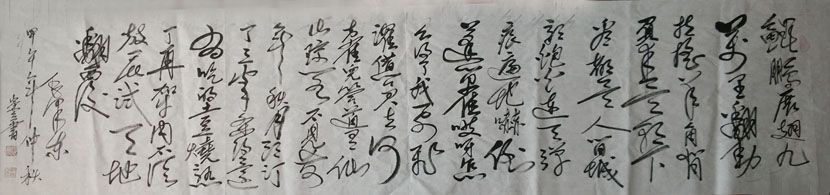 鲲鹏展翅九
万里翻动
扶摇羊角背
负青天朝下
看都是人间城
郭炮火连天弹
痕遍地嚇倒
蓬间雀哎呀怎
么得了我要飞
躍借问君去何
方雀儿答道有仙
山琼阁不见前
年秋月朗订
了三家条约还
有吃的土豆烧熟
了再加牛肉不须
放屁试看天地
翻覆
毛泽东
甲午年仲秋
书